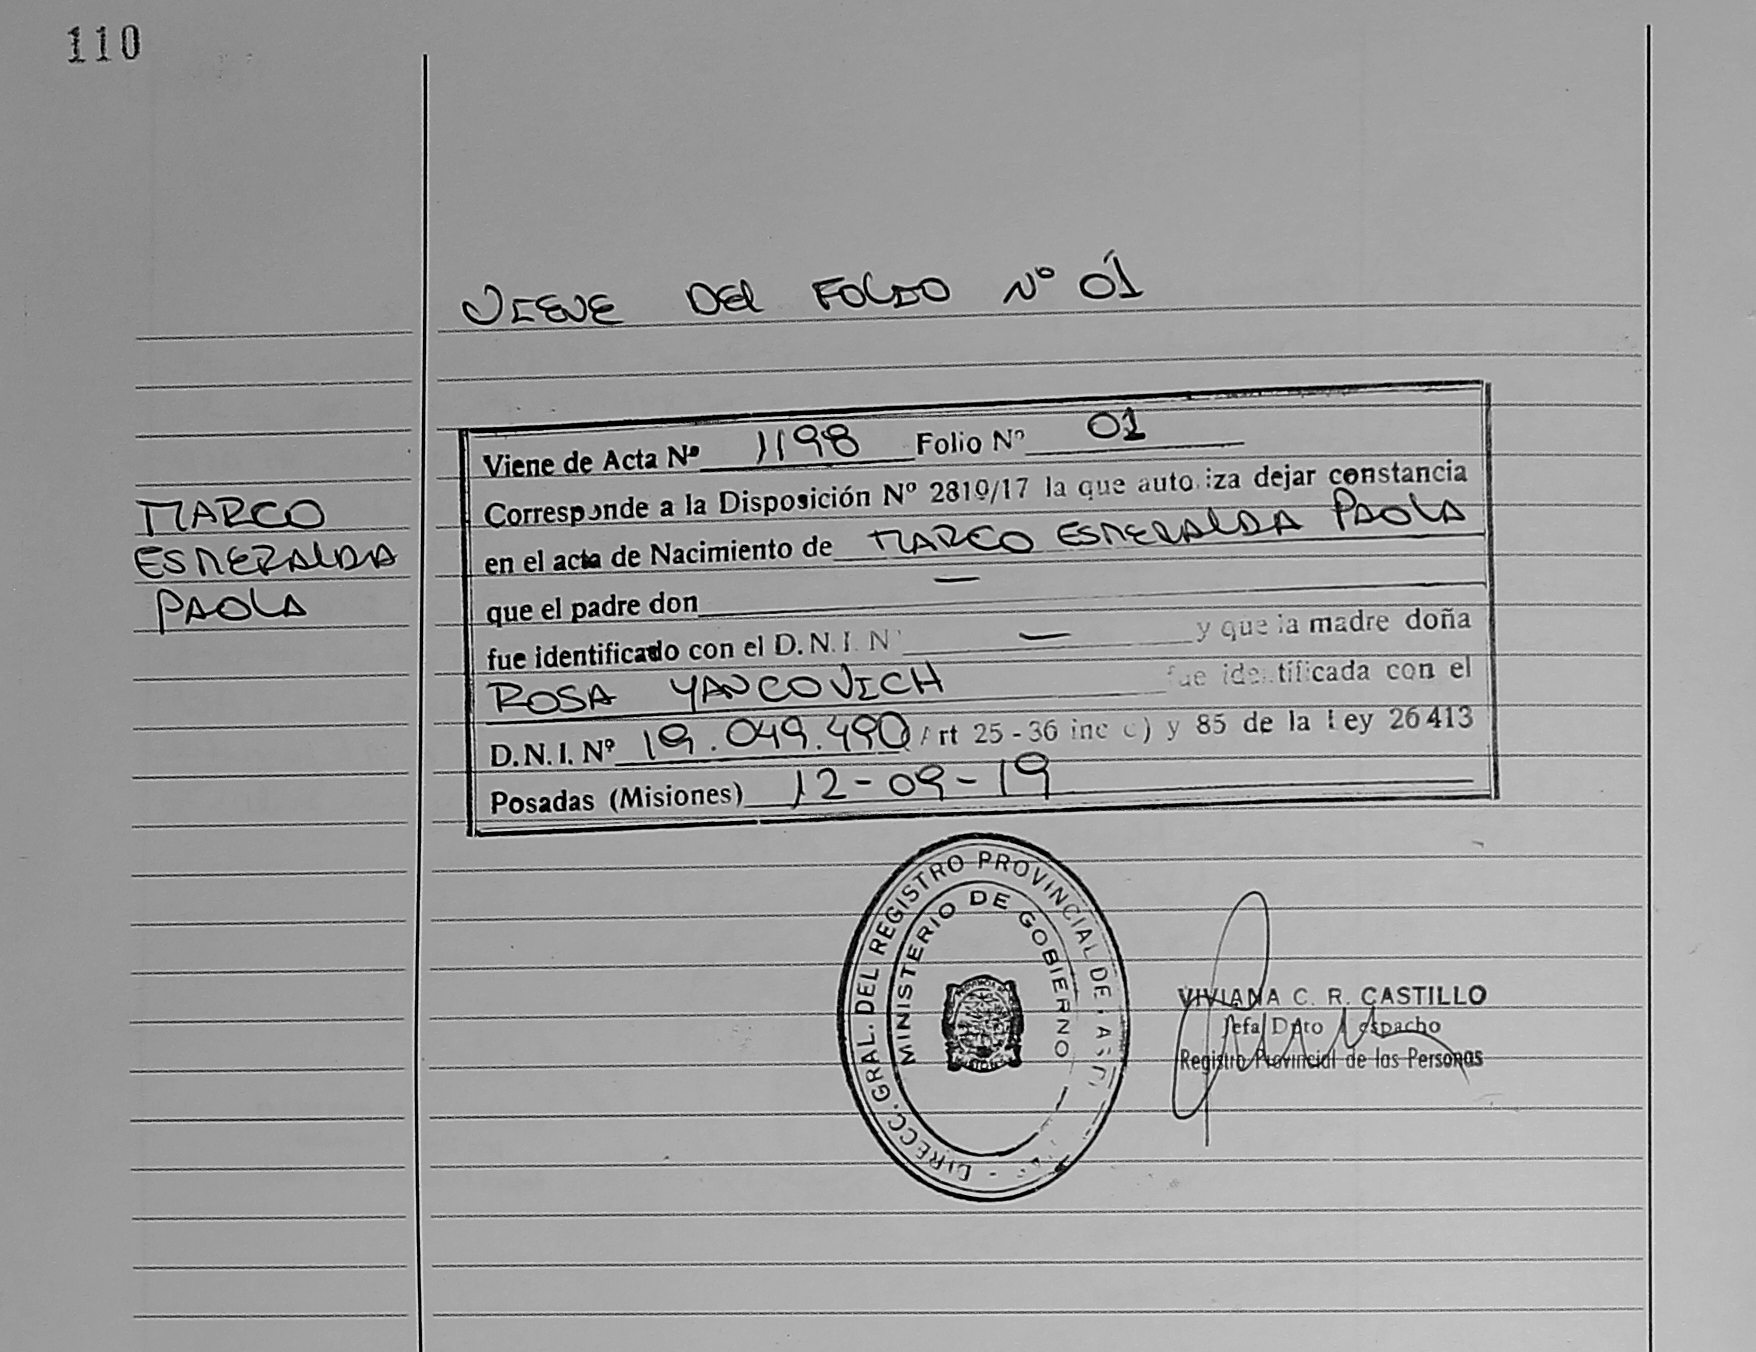 110
VIENE DEL FOLIO Nº 01
Viene de Acta Nº 1198 Folio Nº 01
Corresponde a la Disposición Nº 2810/17 la que autoriza dejar constancia
en el acta de Nacimiento de MARCO ESMERALDA PAOLA
que el padre don —
fue identificado con el D.N.I. Nº — y que la madre doña
ROSA YANCOVICH fue identificada con el
D.N.I. Nº 19.049.490 Art 25 - 36 inc c) y 85 de la Ley 26413
Posadas (Misiones) 12-09-19
MARCO
ESMERALDA
PAOLA
DIRECC. GRAL. DEL REGISTRO PROVINCIAL DE
MINISTERIO DE GOBIERNO
VIVIANA C. R. CASTILLO
Jefa Dpto Despacho
Registro Provincial de las Personas